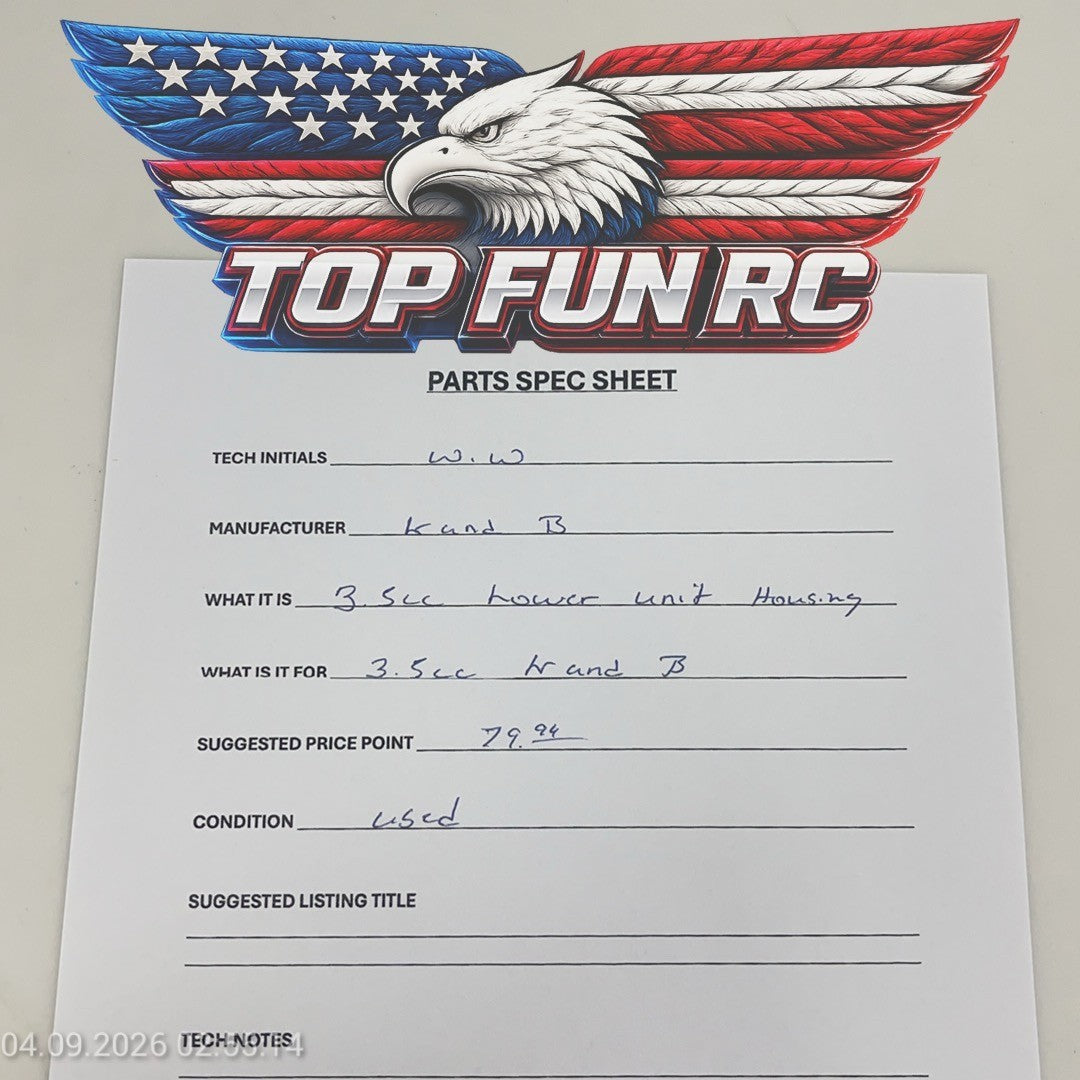 TOP FUN RC
PARTS SPEC SHEET
TECH INITIALS W.W
MANUFACTURER K and B
WHAT IT IS 3.5cc Lower unit Housing
WHAT IS IT FOR 3.5cc K and B
SUGGESTED PRICE POINT 79.94
CONDITION used
SUGGESTED LISTING TITLE
TECH NOTES
04.09.2026 02:53:14